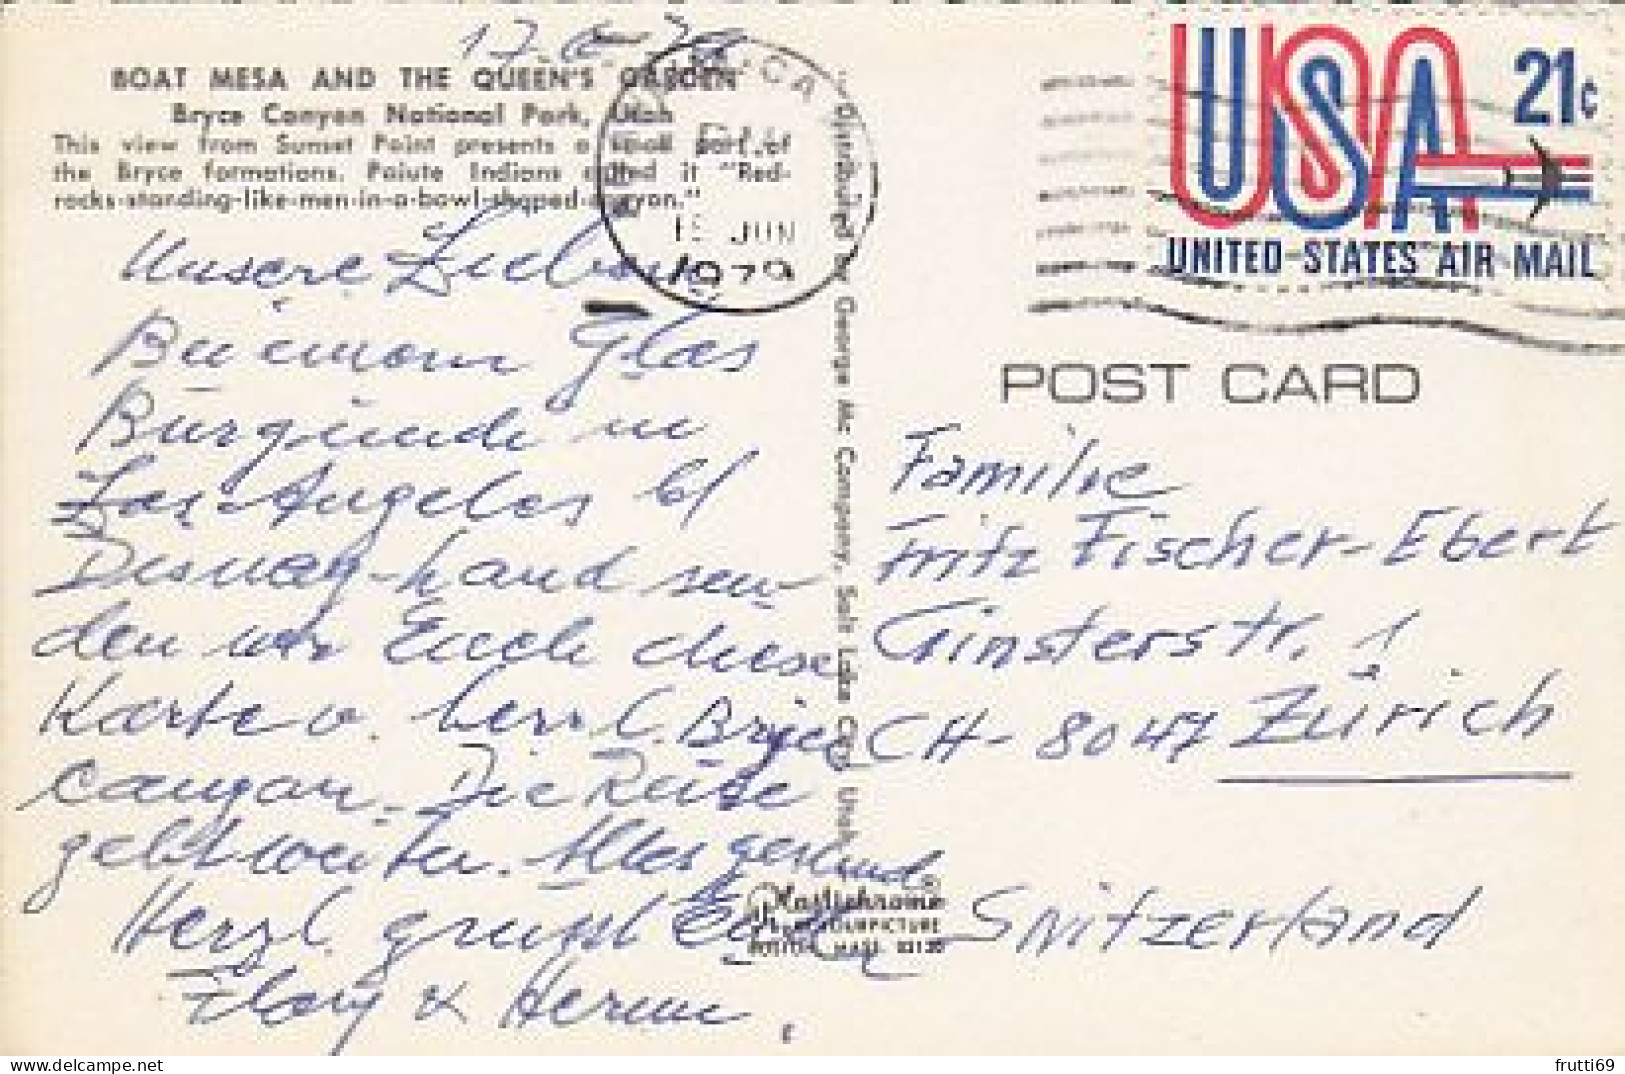 17.6.79
BOAT MESA AND THE QUEEN'S GARDEN
Bryce Canyon National Park, Utah
This view from Sunset Point presents a small part of
the Bryce formations. Paiute Indians called it "Red-
rocks-standing-like-men-in-a-bowl-shaped-canyon."
CA
PM
JUN
1979
USA 21c
UNITED STATES AIR MAIL
POST CARD
Unsere Lieben
Bei einem Glas
Burgunder in
Los Angeles bei
Disney-Land sen-
den wir Euch diese
Karte v. herrl. Bryce
Canyon. Die Reise
geht weiter. Alles gesund
Herzl. grüsst Euch
Flory & Hermi.
Distributed by George Mc Company, Salt Lake City, Utah
Plastichrome®
COLOURPICTURE
BOSTON, MASS. 02130
Familie
Fritz Fischer-Ebert
Ginsterstr. 1
CH-8047 Zürich
Switzerland
frutti69